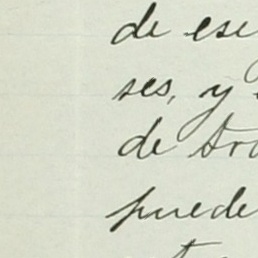 de ese
ses, y
de tra
puede